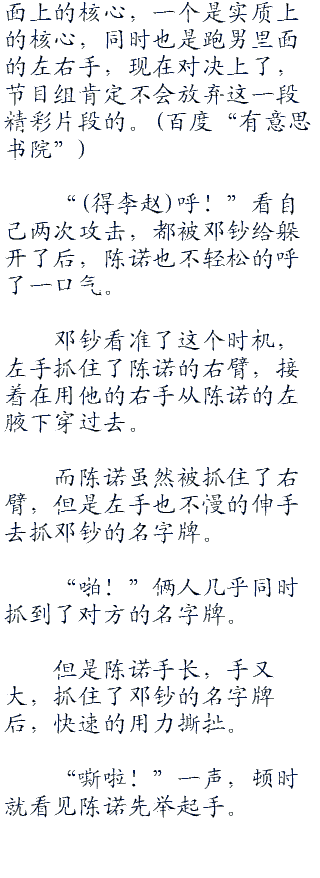 面上的核心，一个是实质上
的核心，同时也是跑男里面
的左右手，现在对决上了，
节目组肯定不会放弃这一段
精彩片段的。(百度“有意思
书院”)
“(得李赵)呼！”看自
己两次攻击，都被邓钞给躲
开了后，陈诺也不轻松的呼
了一口气。
邓钞看准了这个时机，
左手抓住了陈诺的右臂，接
着在用他的右手从陈诺的左
腋下穿过去。
而陈诺虽然被抓住了右
臂，但是左手也不慢的伸手
去抓邓钞的名字牌。
“啪！”俩人几乎同时
抓到了对方的名字牌。
但是陈诺手长，手又
大，抓住了邓钞的名字牌
后，快速的用力撕扯。
“嘶啦！”一声，顿时
就看见陈诺先举起手。